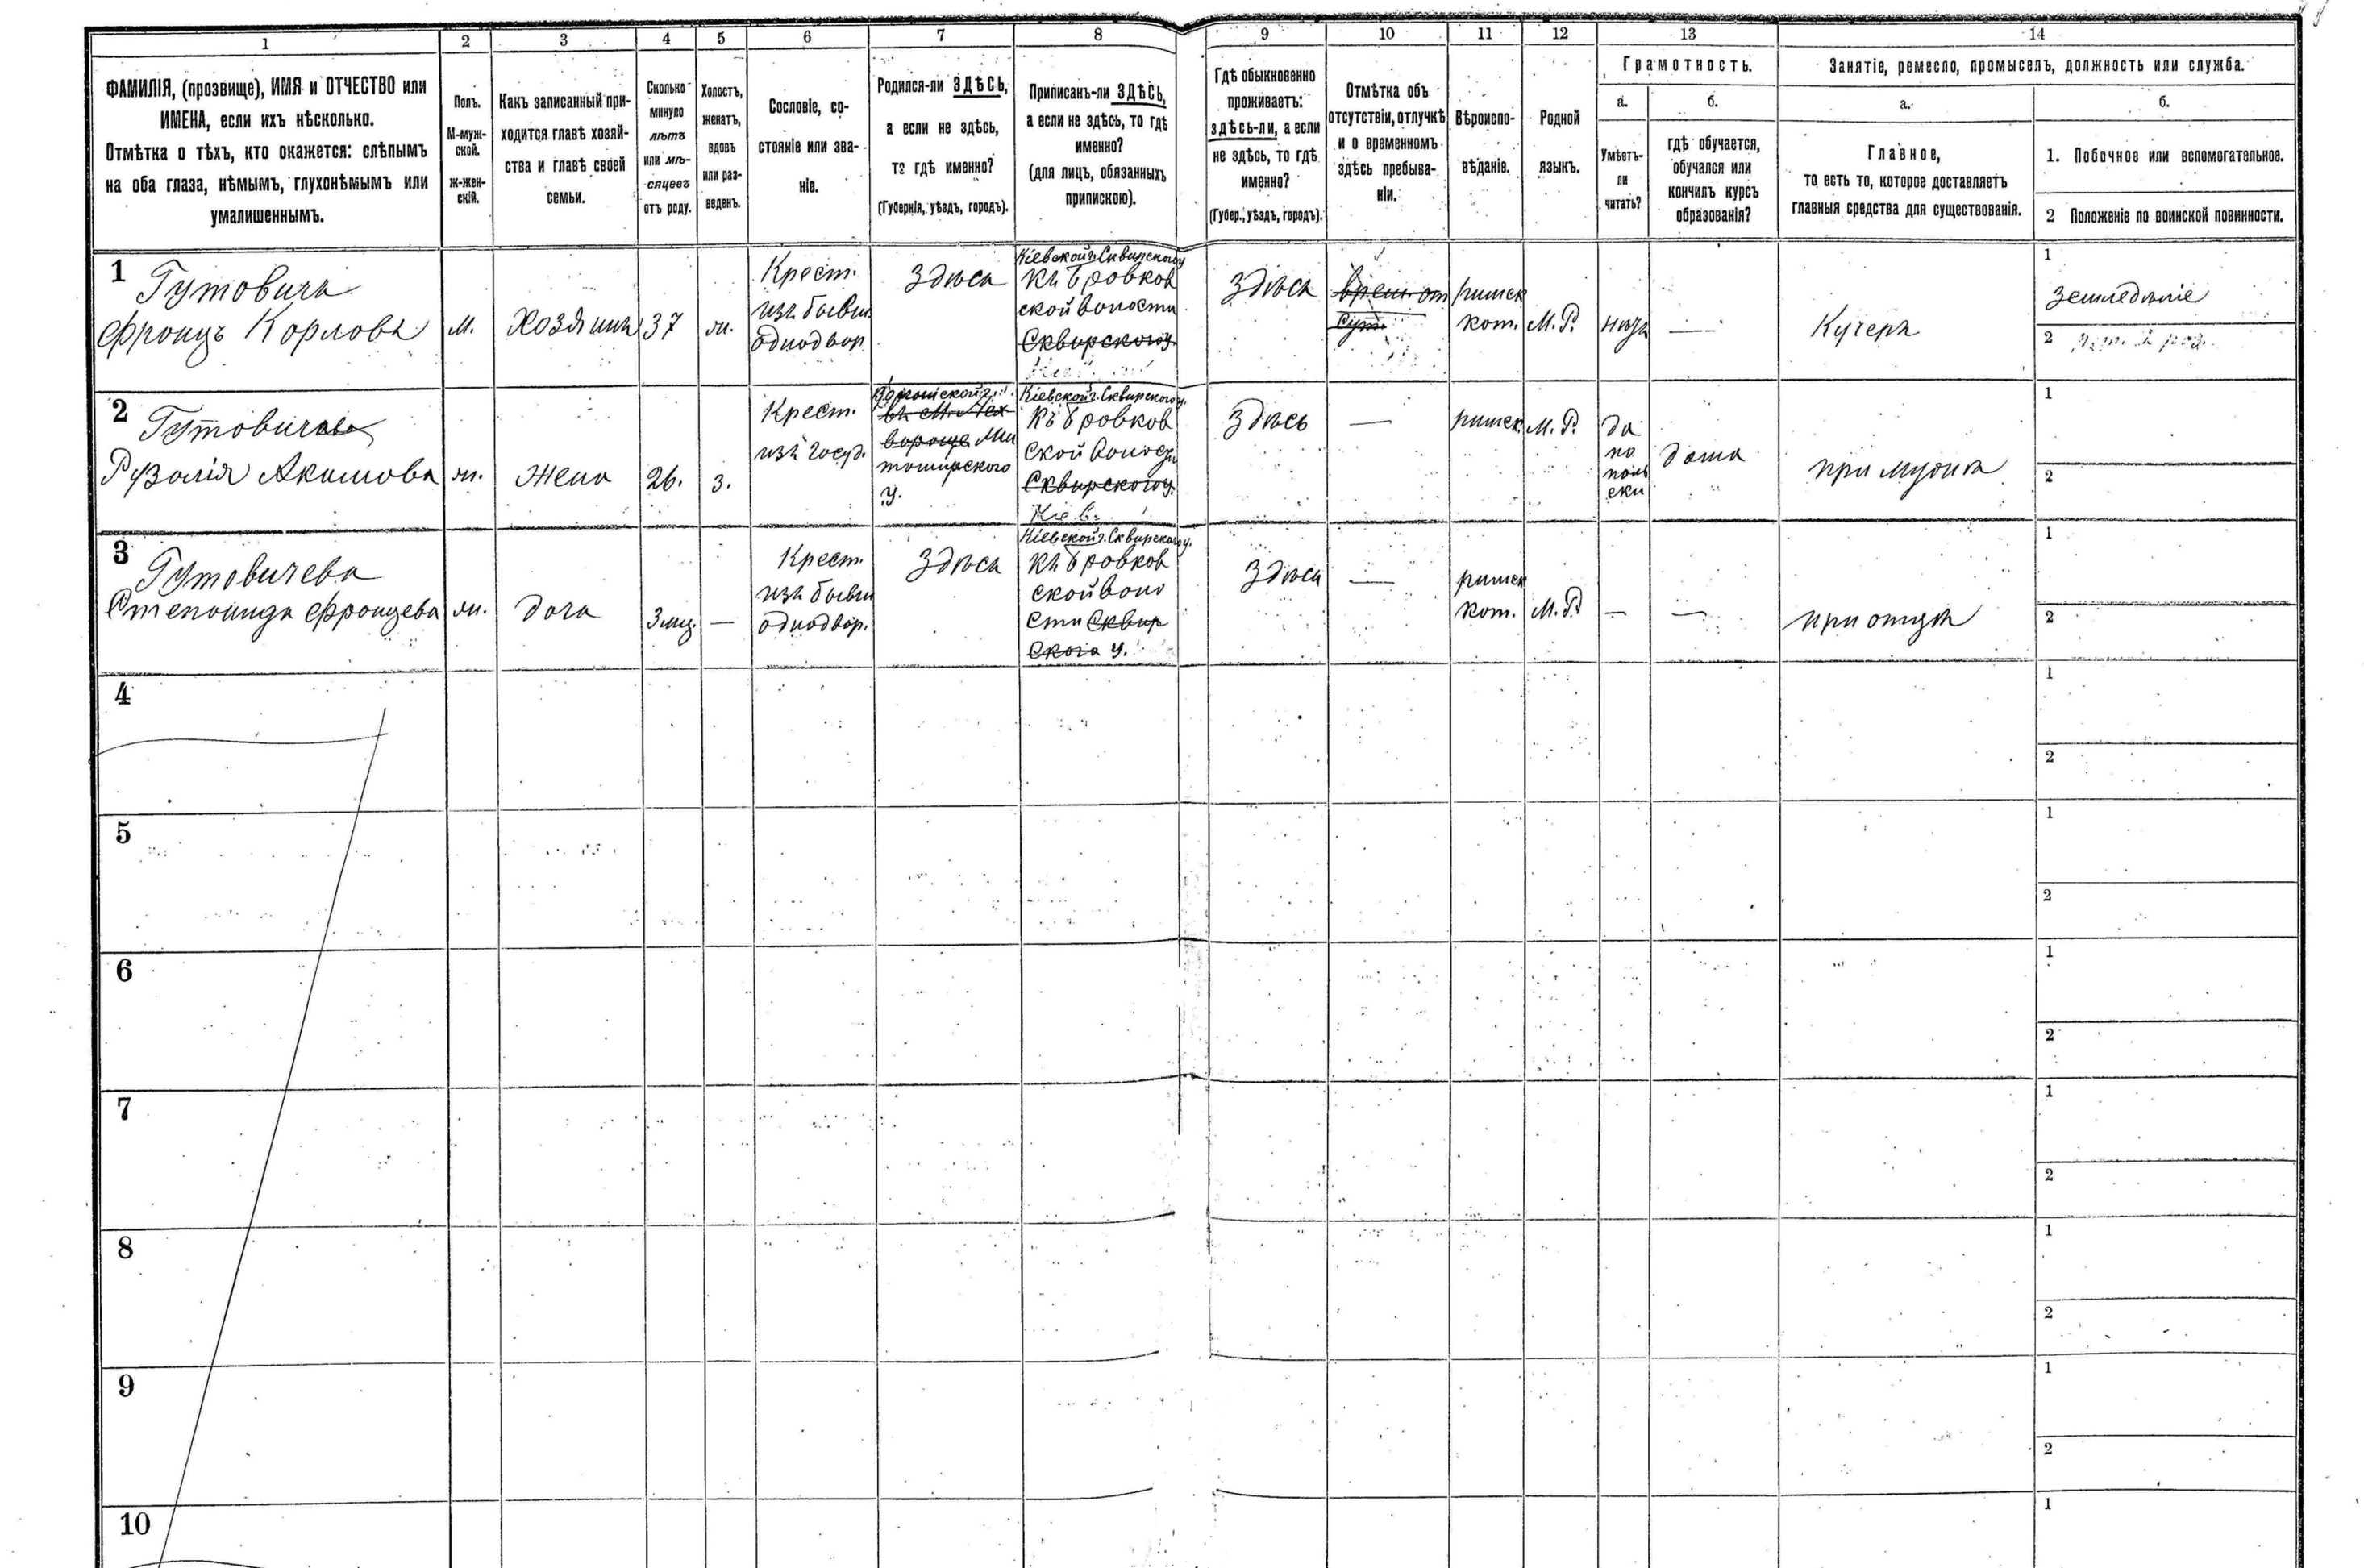 1 2 3 4 5 6 7 8 9 10 11 12 13 14
ФАМИЛІЯ, (прозвище), ИМЯ и ОТЧЕСТВО или
ИМЕНА, если ихъ нѣсколько.
Отмѣтка о тѣхъ, кто окажется: слѣпымъ
на оба глаза, нѣмымъ, глухонѣмымъ или
умалишеннымъ.
Полъ.
М-муж-
ской.
ж-жен-
скій.
Какъ записанный при-
ходится главѣ хозяй-
ства и главѣ своей
семьи.
Сколько
минуло
лѣтъ
или мѣ-
сяцевъ
отъ роду.
Холостъ,
женатъ,
вдовъ
или раз-
веденъ.
Сословіе, со-
стояніе или зва-
ніе.
Родился-ли ЗДѢСЬ,
а если не здѣсь,
то гдѣ именно?
(Губернія, уѣздъ, городъ).
Приписанъ-ли ЗДѢСЬ,
а если не здѣсь, то гдѣ
именно?
(для лицъ, обязанныхъ
припискою).
Гдѣ обыкновенно
проживаетъ:
здѣсь-ли, а если
не здѣсь, то гдѣ
именно?
(Губер., уѣздъ, городъ).
Отмѣтка объ
отсутствіи, отлучкѣ
и о временномъ
здѣсь пребыва-
ніи.
Вѣроиспо-
вѣданіе.
Родной
языкъ.
Грамотность.
а.
Умѣетъ-
ли
читать?
б.
гдѣ обучается,
обучался или
кончилъ курсъ
образованія?
Занятіе, ремесло, промыселъ, должность или служба.
а.
Главное,
то есть то, которое доставляетъ
главныя средства для существованія.
б.
1. Побочное или вспомогательное.
2 Положеніе по воинской повинности.
1
Гутовичъ
Францъ Карловъ
м.
Хозяинъ
37
ж.
Крест.
изъ бывш.
однодвор.
Здѣсь
Кіевской г. Сквирского у
къ Бровков
ской волости
Сквирского у.
Здѣсь
времен. от
сут.
римск
кат.
М. Р.
нѣтъ
—
Кучеръ
1
земледѣліе
2
2
Гутовичева
Рузалія Акимова
ж.
жена
26.
з.
Крест.
изъ госуд.
Волынской г.
Жи
томирского
у.
Кіевской г. Сквирского у.
къ Бровков
ской волости
Сквирского у.
Кіев.
Здѣсь
—
римск.
М. Р.
да
по
поль
ски
дома
при мужѣ
1
2
3
Гутовичева
Степанида Францева
ж.
дочь
3 мц.
—
Крест.
изъ бывш
однодвор.
Здѣсь
Кіевской г. Сквирского у.
къ Бровков
ской воло
сти Сквир
ского у.
Здѣсь
—
римск
кат.
М. Р.
—
—
при отцѣ
1
2
4
1
2
5
1
2
6
1
2
7
1
2
8
1
2
9
1
2
10
1